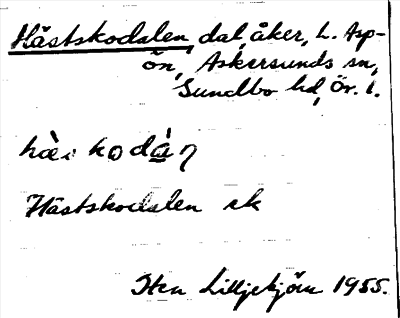 Hästskodalen, dal, åker, L. Asp-
ön, Askersunds sn,
Sundbo hd, Ör. l.
Hästskodalen rk
Sten Liljebjörn 1955.